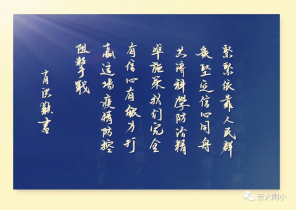 紧紧依靠人民群
众坚定信心同舟
共济科学防治精
准施策我们完全
有信心有能力打
赢这场疫情防控
阻击战